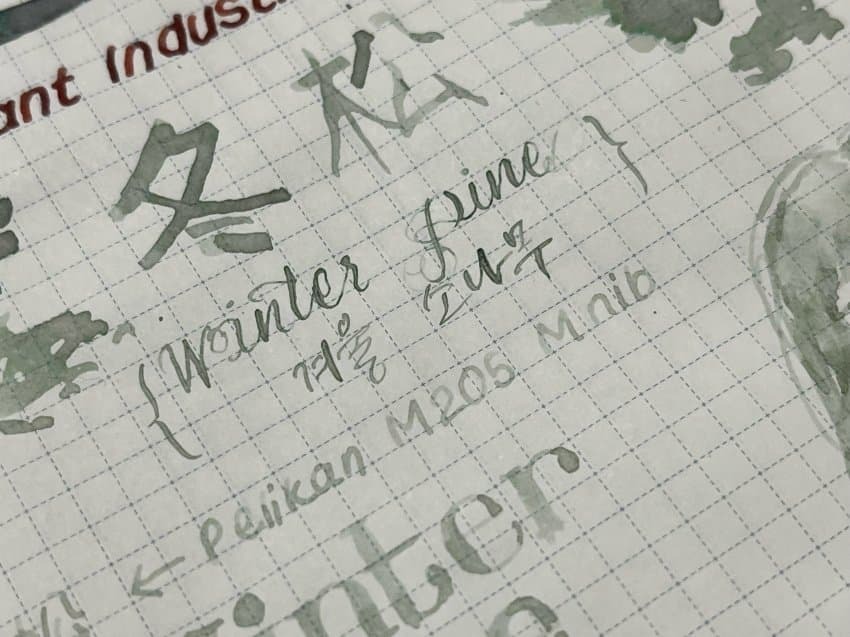 ant Indust
冬松
{Winter pine}
겨울 소나무
← Pelikan M205 M nib
inter